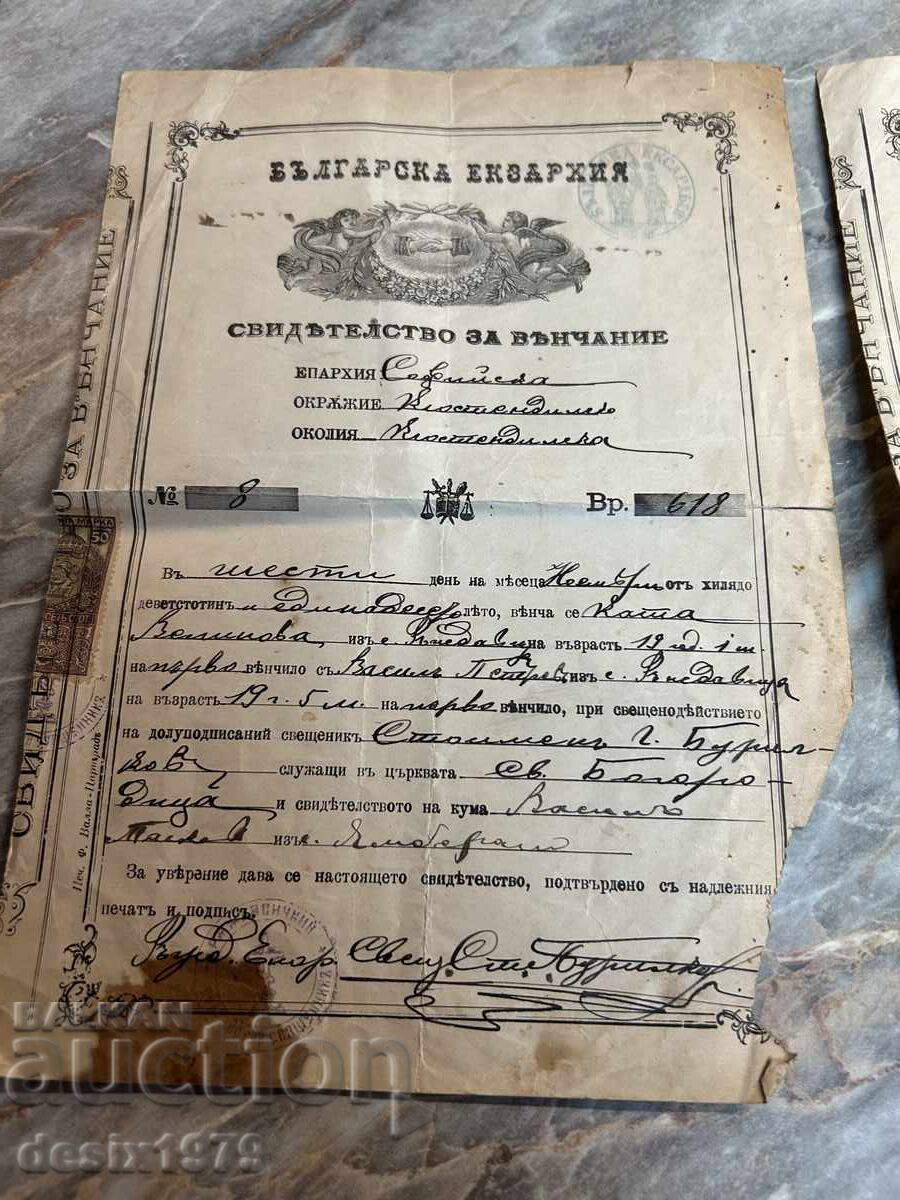 БЪЛГАРСКА ЕКЗАРХИЯ
СВИДѢТЕЛСТВО ЗА ВѢНЧАНИЕ
ЕПАРХИЯ Софийска
ОКРѪЖИЕ Кюстендилско
ОКОЛИЯ Кюстендилска
№ 8 Вр. 618
Въ шести день на мѣсеца Ноемврий отъ хилядо
деветстотин и единадесето лѣто, вѣнча се Ката
Велинова, изъ с. на възрасть 19 год. 1 м.
на първо вѣнчило съ Василъ Петровъ, изъ с.
на възрасть 19 г. 5 м. на първо вѣнчило, при свещенодѣйствието
на долуподписаний свещеникъ Стоименъ Г. Бурил-
ковъ служащи въ църквата Св. Богоро-
дица и свидѣтелството на кума Василъ
изъ с.
За увѣрение дава се настоящето свидѣтелство, подтвърдено съ надлежния
печатъ и подписъ.
Свещ. Ст. Бурилковъ
ЗА ВѢНЧАНИЕ
СВИДѢ
Печ. Ф. Валла-Цариградъ
МАРКА
50
ЗА ВѢНЧАНИЕ
BALKAN
auction
desix1979